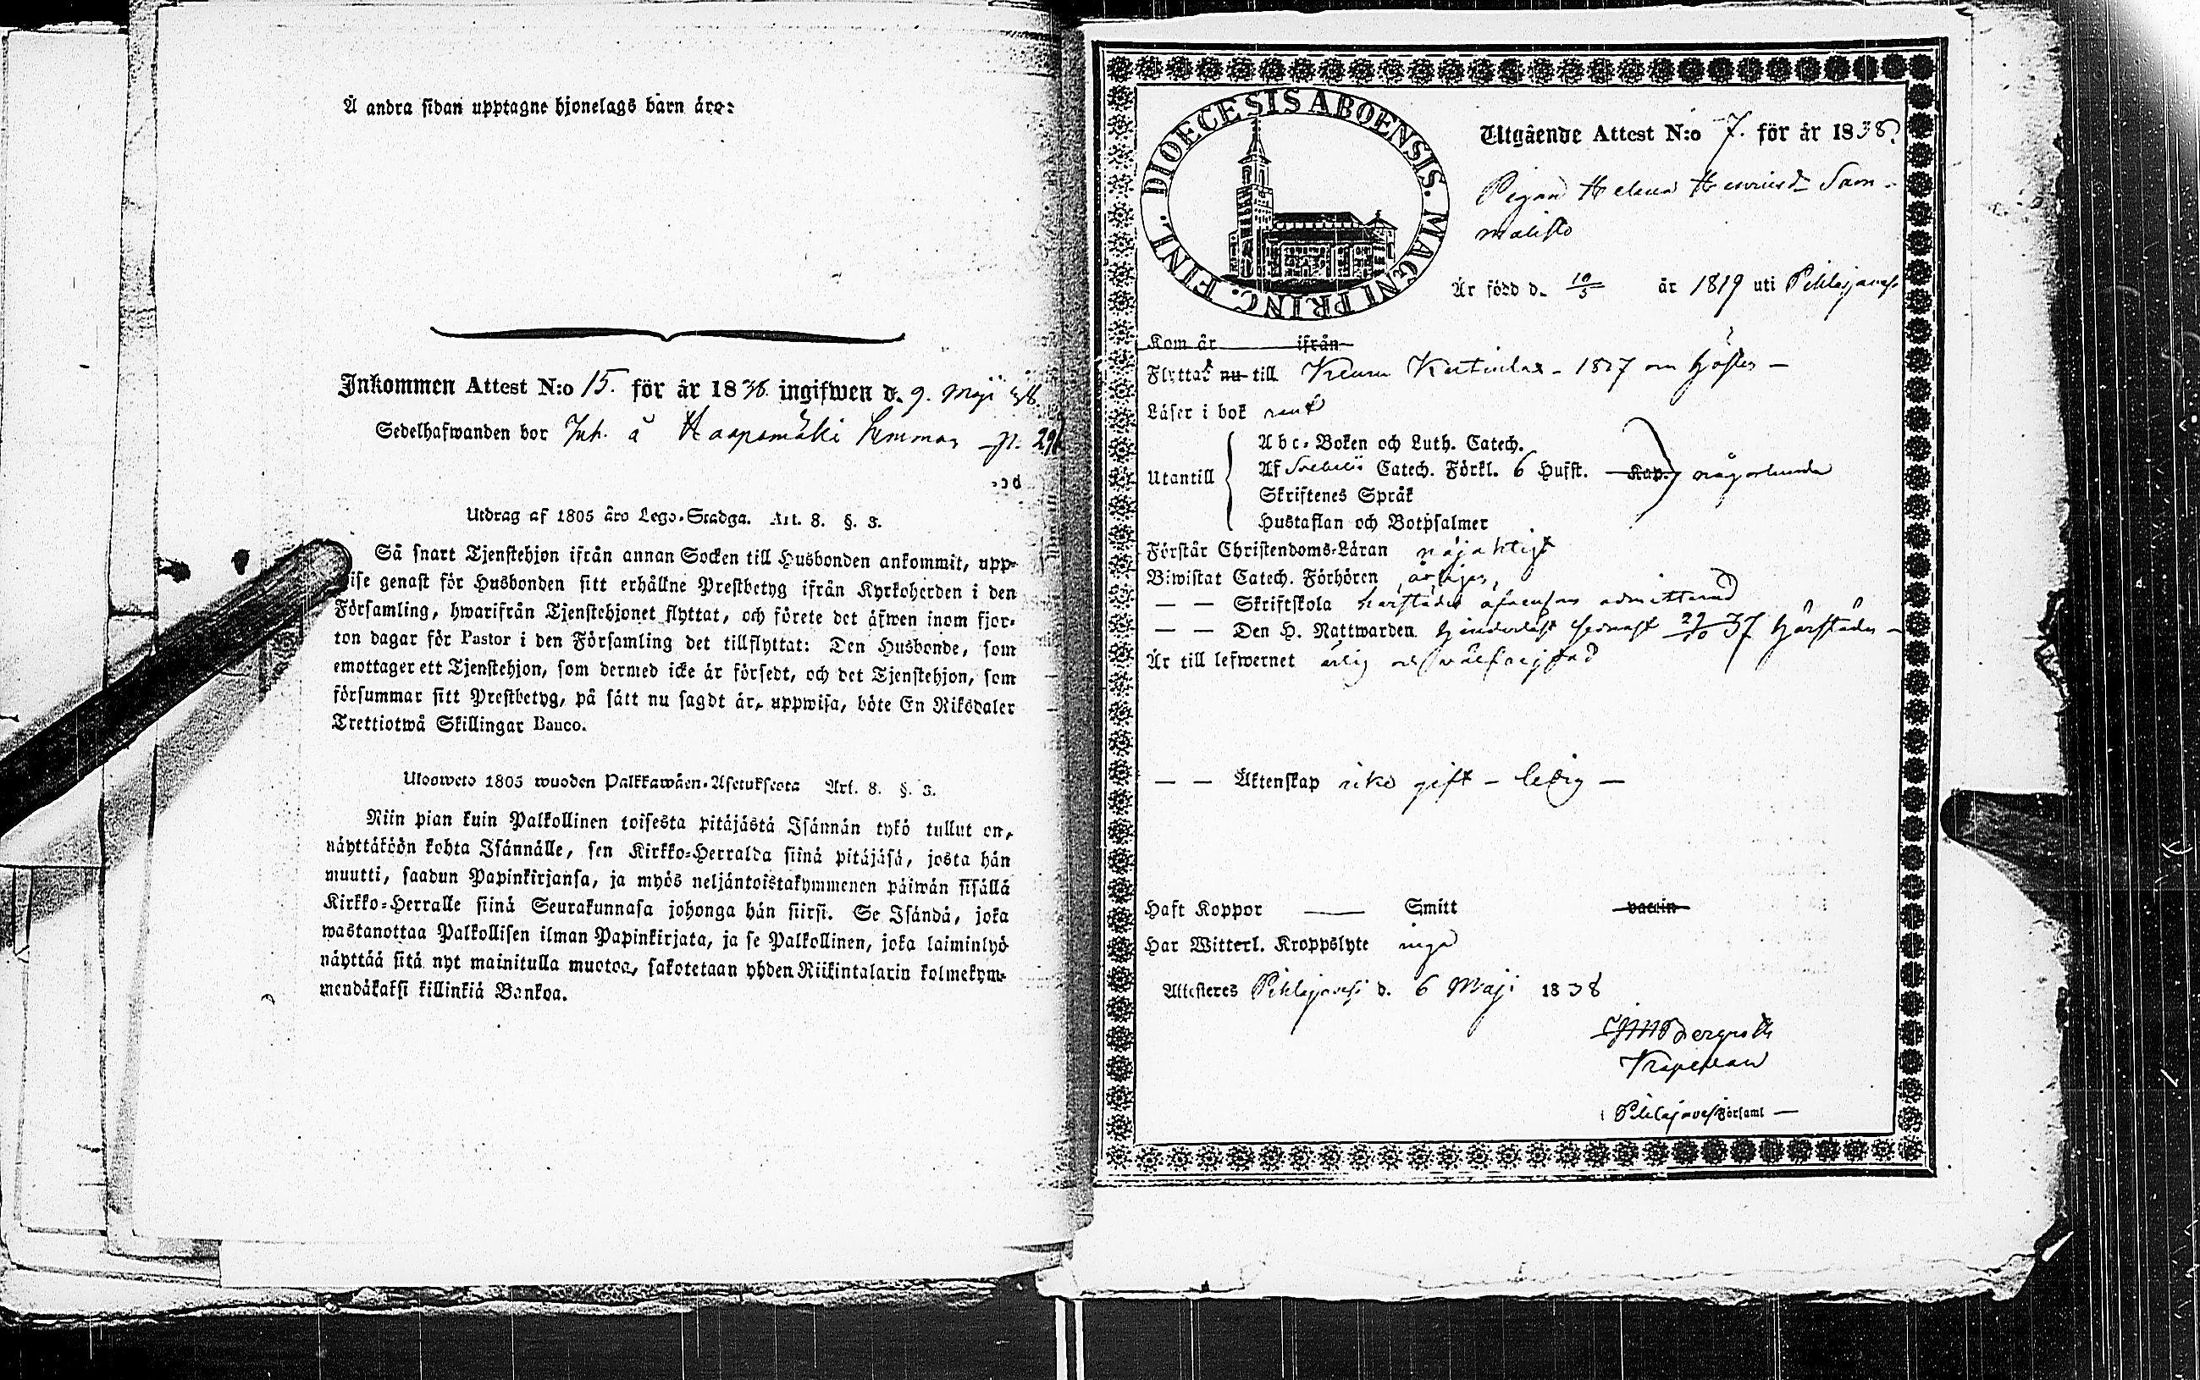 Å andra sidan upptagne hjonelags barn äro:
Inkommen Attest N:o 15. för år 1838 ingifwen d. 9. Maji 38
Sedelhafwanden bor Inh. å Haapamäki
Utdrag af 1805 års Lego-Stadga. Art. 8. §. 3.
Så snart Tjenstehjon ifrån annan Socken till Husbonden ankommit, upp-
wise genast för Husbonden sitt erhållne Prestbetyg ifrån Kyrkoherden i den
Församling, hwarifrån Tjenstehjonet flyttat, och förete det äfwen inom fjor-
ton dagar för Pastor i den Församling det tillflyttat: Den Husbonde, som
emottager ett Tjenstehjon, som dermed icke är försedt, och det Tjenstehjon, som
försummar sitt Prestbetyg, på sätt nu sagdt är, uppwisa, böte En Riksdaler
Trettiotwå Skillingar Banco.
Ulosweto 1805 wuoden Palkkawäen-Asetuksesta Art. 8. §. 3.
Niin pian kuin Palkollinen toisesta pitäjästä Isännän tykö tullut on,
näyttäköön kohta Isännälle, sen Kirkko-Herralda siinä pitäjäsä, josta hän
muutti, saadun Papinkirjansa, ja myös neljäntoistakymmenen päiwän sisällä
Kirkko-Herralle siinä Seurakunnasa johonga hän siirsi. Se Isändä, joka
wastanottaa Palkollisen ilman Papinkirjata, ja se Palkollinen, joka laiminlyö
näyttää sitä nyt mainitulla muotoa, sakotetaan yhden Riikintalarin kolmekym-
mendäkaksi killinkiä Bankoa.
DIOECESIS ABOENSIS. MAGNI PRINC. FINL.
Utgående Attest N:o 7. för år 1838.
Pigan Helena Henricsdr Sam-
malisto
Är född d. 10/5 år 1819 uti Pihlajavesi
Kom år ifrån
Flyttat nu till Keuru 1837 om hösten
Läser i bok rent
Abc-Boken och Luth. Catech.
Utantill Af Svebelii Catech. Förkl. 6 Hufst. Kap. någorlunda
Skriftenes Språk
Hustaflan och Botpsalmer
Förstår Christendoms-Läran nöjaktigt
Biwistat Catech. Förhören årligen,
— — Skriftskola härstädes admitterad
— — Den H. Nattwarden senast 29/10 37 härstädes
Är till lefwernet ärlig och välfrejdad
— — Äktenskap icke gift – ledig –
Haft Koppor — Smitt vaccin
Har Witterl. Kroppslyte inga
Attesteres Pihlajavesi d. 6 Maji 1838
Bergroth
Kapellan
i Pihlajavesi Församl